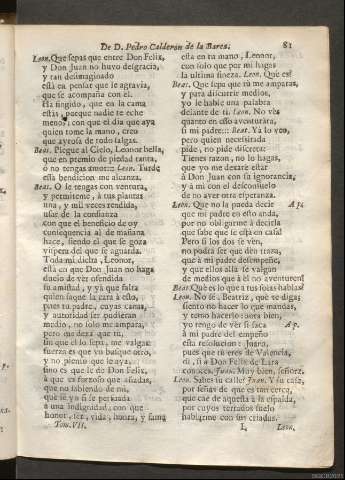 De D. Pedro Calderon de la Barca. 81
Leon. Que sepas que entre Don Felix,
y Don Juan no huvo desgracia,
y tan desimaginado
està en pensar que le agravia,
que se acompaña con el.
Ha fingido, que en la cama
estàs, porque nadie te eche
menos: con que el dia que aya
quien tome la mano, creo
que ayrosa de todo salgas.
Beat. Plegue al Cielo, Leonor bella,
que en premio de piedad tanta,
o no tengas amor: Leon. Tarde
essa bendicion me alcanza.
Beat. O le tengas con ventura,
y permiteme, à tus plantas
una, y mil veces rendida,
usar de la confianza
con que el beneficio de oy
consequencia al de mañana
hace, siendo el que se goza
vispera del que se aguarda.
Toda mi dicha, Leonor,
està en que Don Juan no haga
duelo de vèr ofendida
su amistad, y yà que falta
quien saque la cara à esto,
pues tu padre, cuyas canas,
y autoridad ser pudieran
medio, no solo me ampara,
pero me dexa que tu,
sin que el lo sepa, me valgas:
fuerza es que yo busque otro,
y no pienso que le aya,
sino es que le dè Don Felix,
à que es forzoso que añadas,
que no sabiendo de mi,
que se yo si se persuada
à una indignidad, con que
honor, ser, vida, honra, y fama
Tom. VII.
està en tu mano, Leonor,
con solo que por mi hagas
la ultima fineza. Leon. Què es?
Beat. Que sepa que tù me amparas,
y para discurrir medios,
yo le hable una palabra
delante de ti. Leon. No vès
quanto en esso aventuràra,
si mi padre:: Beat. Ya lo veo,
pero quien necessitada
pide, no pide discreta:
Tienes razon, no lo hagas,
que yo me dexarè estàr
à Don Juan con su ignorancia,
y à mi con el desconsuelo
de no aver otra esperanza.
Leon. Que no la pueda decir Ap.
que mi padre en esto anda,
por no obligarme à decirla
que sabe que le està en casa!
Pero si los dos se vèn,
no podrà ser que den traza,
que à mi padre desempeñe,
y que ellos allà se valgan
de medios que à èl no aventuren?
Beat. Què es lo que à tus solas hablas?
Leon. No sè, Beatriz, què te diga;
siento no hacer lo que mandas,
y temo hacerlo: aora bien,
yo tengo de vèr si saca Ap.
à mi padre del empeño
esta resolucion: Juana,
pues que tù eres de Valencia,
di, si à Don Felix de Lara
conoces. Juan. Muy bien, señora.
Leon. Sabes su calle? Juan. Y su casa,
por señas de que es tan cerca,
que cae de aquesta à la espalda,
por cuyos terrados suelo
hablarme con sus criadas.
L Leon.